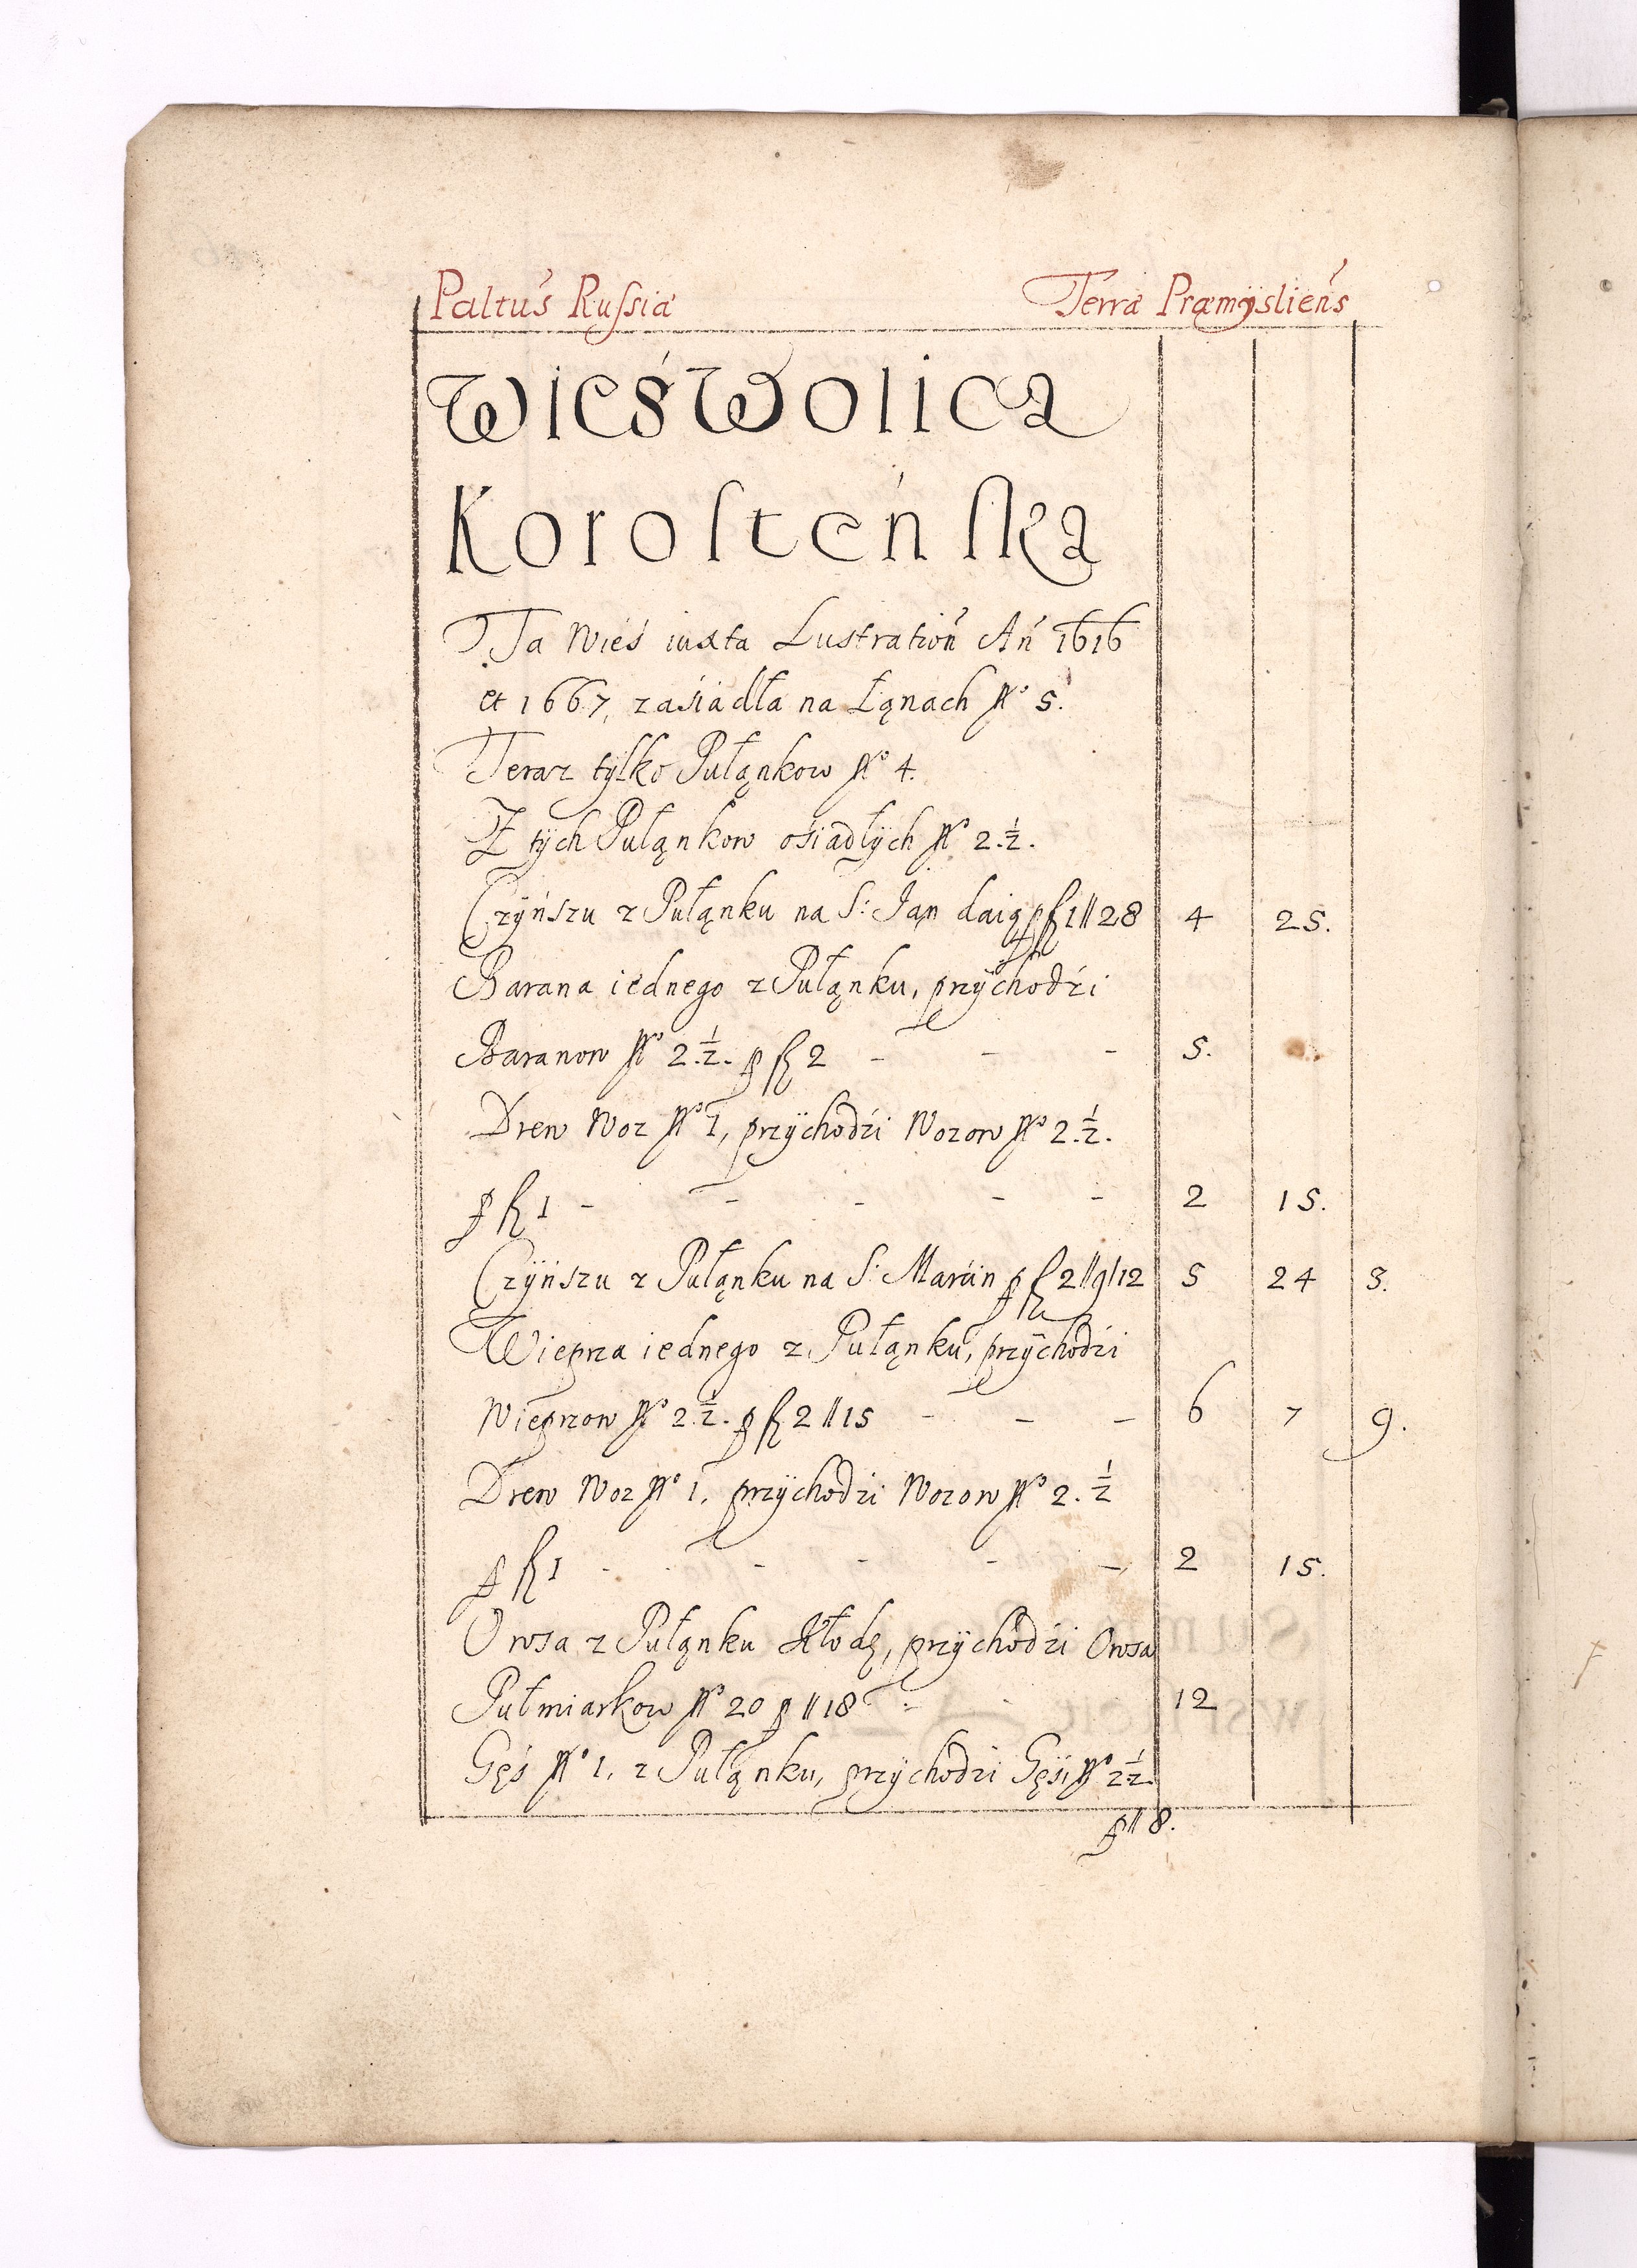 Paltus Russiæ Terræ Præmÿsliens
Wieś Wolica
Korosteńska
Ta Wieś iuxta Lustration An 1616
et 1667, zasiadła na Łąnach No 5.
Teraz tÿlko Pułąnkow No 4.
Z tÿch Pułąnkow ośiadłÿch No 2.½.
Czÿńszu z Pułąnku na S: Jan daią p fl 1 // 28 4 25.
Barana iednego z Pułąnku, przÿchodźi
Baranow No 2.½. p fl 2 - - - 5.
Drew Woz No 1, przÿchodźi Wozow No 2.½.
p fl 1 - - - - - 2 15.
Czÿńszu z Pułąnku na S: Marćin p fl 2 // 9 / 12 5 24 3.
Wieprza iednego z Pułąnku, przÿchodźi
Wieprzow No 2.½. p fl 2 // 15 - - - 6 7 9.
Drew Woz No 1, przÿchodźi Wozow No 2.½
p fl 1 - - - - - 2 15.
Owsa z Pułąnku Kłodę, przÿchodźi Owsa
Pułmiarkow No 20 p // 18 - 12
Gęś No 1, z Pułąnku, przÿchodźi Gęśi No 2½.
p // 8.